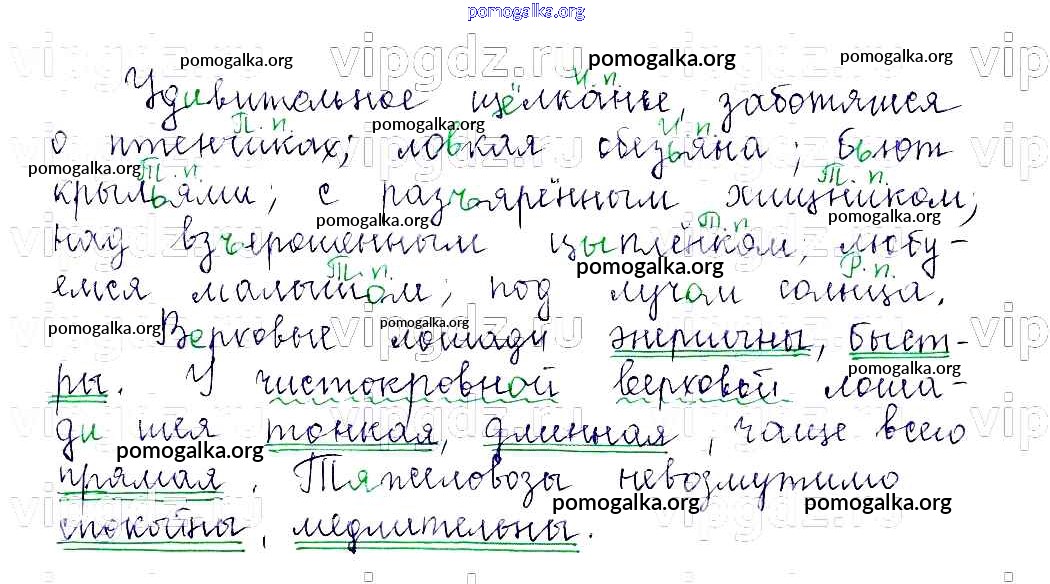 pomogalka.org
vipgdz.ru vipgdz.ru vip
pomogalka.org pomogalka.org pomogalka.org
И. п.
Удивительное щёлканье, заботящиеся
П. п. pomogalka.org И. п.
о птенчиках; ловкая обезьяна; бьют
pomogalka.org Т. п. Т. п.
крыльями; с разъярённым хищником;
pomogalka.org Т. п. pomogalka.org
над взъерошенным цыплёнком, любу-
Т. п. pomogalka.org Р. п.
емся малышом; под лучом солнца.
pomogalka.org pomogalka.org pomogalka.org
Верховые лошади энергичны, быст-
pomogalka.org
ры. У чистокровной верховой лоша-
ди шея тонкая, длинная, чаще всего
pomogalka.org
прямая. Тяжеловозы невозмутимо
pomogalka.org pomogalka.org
спокойны, медлительны.